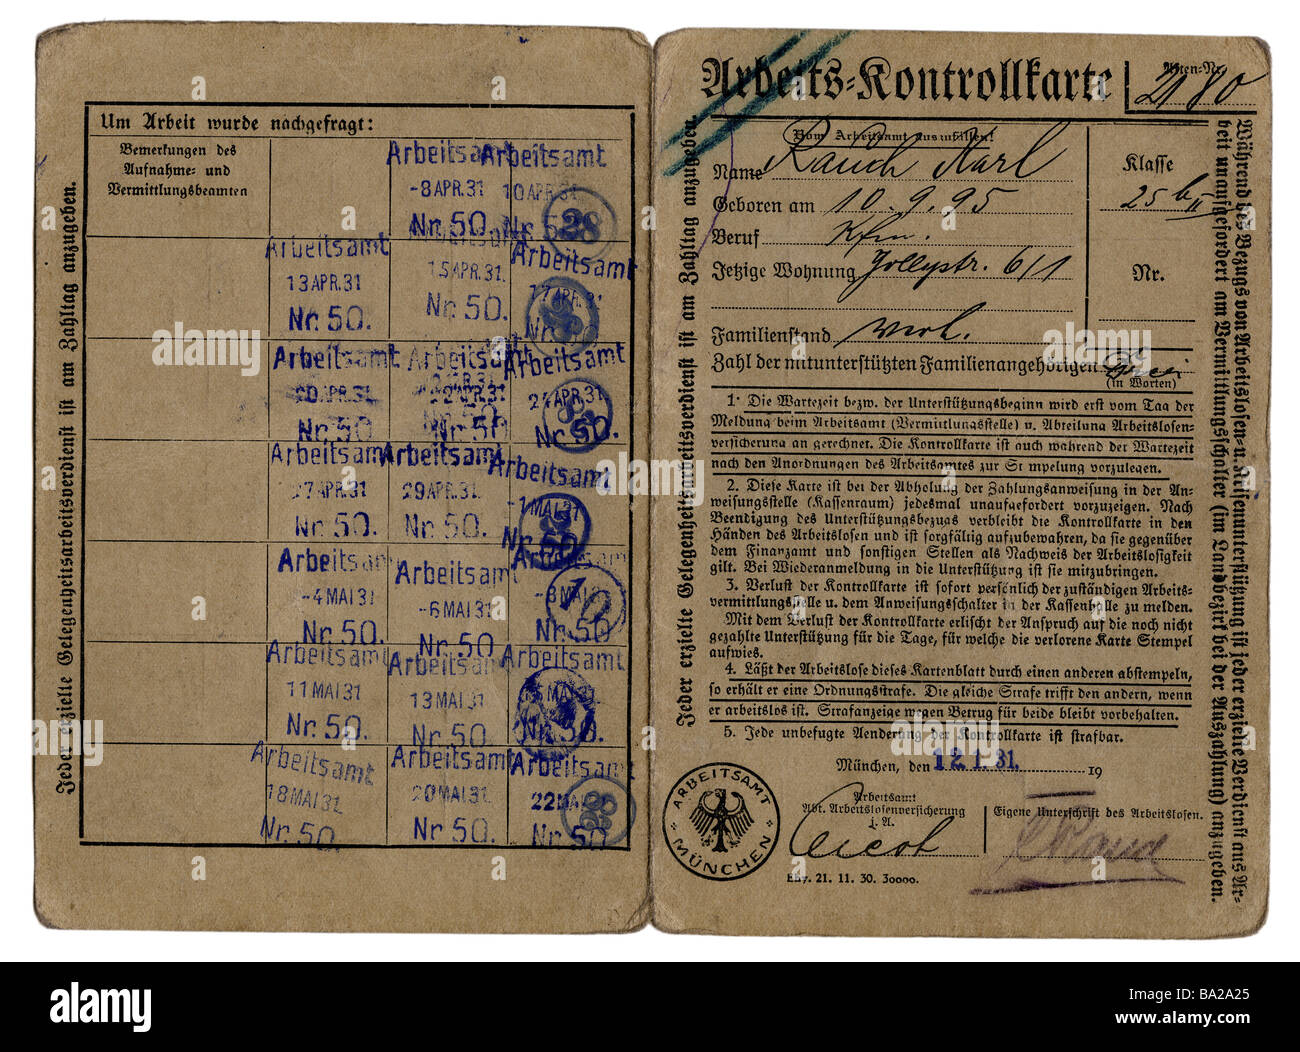 Um Arbeit wurde nachgefragt:
Bemerkungen des
Aufnahme= und
Vermittlungsbeamten
Arbeitsamt
-8 APR. 31
Nr. 50.
Arbeitsamt
10 APR. 31
Nr. 5
28
Arbeitsamt
13 APR. 31
Nr. 50.
15 APR. 31
Nr. 50.
Arbeitsamt
17 APR. 31
Arbeitsamt
20 APR. 31
Nr. 50
Arbeitsamt
22 APR. 31
Nr. 50
Arbeitsamt
24 APR. 31
Nr. 50.
Arbeitsamt
27 APR. 31
Nr. 50.
Arbeitsamt
29 APR. 31
Nr. 50.
Arbeitsamt
-1 MAI 31
Nr. 50
Arbeitsamt
-4 MAI 31
Nr. 50
Arbeitsamt
-6 MAI 31
Nr. 50.
Arbeitsamt
-8 MAI 31
Nr. 50
10
Arbeitsamt
11 MAI 31
Nr. 50.
Arbeitsamt
13 MAI 31
Nr. 50.
Arbeitsamt
MAI 31
Nr. 50.
Arbeitsamt
18 MAI 31
Nr. 50.
Arbeitsamt
20 MAI 31
Nr. 50.
Arbeitsamt
22 MAI
Nr. 50.
Jeder erzielte Gelegenheitsarbeitsverdienst ist am Zahltag anzugeben.
Jeder erzielte Gelegenheitsarbeitsverdienst ist am Zahltag anzugeben.
Arbeits=Kontrollkarte
Akten=Nr.
2180
Vom Arbeitsamt auszufüllen!
Name Rauch Karl
Klasse
25 b II
Geboren am 10. 9. 95
Beruf Kfm.
Jetzige Wohnung Jollystr. 6/1
Nr.
Familienstand verh.
Zahl der mitunterstützten Familienangehörigen
(in Worten)
1. Die Wartezeit bezw. der Unterstützungsbeginn wird erst vom Tag der
Meldung beim Arbeitsamt (Vermittlungsstelle) u. Abteilung Arbeitslosen=
versicherung an gerechnet. Die Kontrollkarte ist auch während der Wartezeit
nach den Anordnungen des Arbeitsamtes zur St mpelung vorzulegen.
2. Diese Karte ist bei der Abholung der Zahlungsanweisung in der An=
weisungsstelle (Kassenraum) jedesmal unaufgefordert vorzuzeigen. Nach
Beendigung des Unterstützungsbezugs verbleibt die Kontrollkarte in den
Händen des Arbeitslosen und ist sorgfältig aufzubewahren, da sie gegenüber
dem Finanzamt und sonstigen Stellen als Nachweis der Arbeitslosigkeit
gilt. Bei Wiederanmeldung in die Unterstützung ist sie mitzubringen.
3. Verlust der Kontrollkarte ist sofort persönlich der zuständigen Arbeits=
vermittlungsstelle u. dem Anweisungsschalter in der Kassenhalle zu melden.
Mit dem Verlust der Kontrollkarte erlischt der Anspruch auf die noch nicht
gezahlte Unterstützung für die Tage, für welche die verlorene Karte Stempel
aufwies.
4. Läßt der Arbeitslose dieses Kartenblatt durch einen anderen abstempeln,
so erhält er eine Ordnungsstrafe. Die gleiche Strafe trifft den andern, wenn
er arbeitslos ist. Strafanzeige wegen Betrug für beide bleibt vorbehalten.
5. Jede unbefugte Aenderung der Kontrollkarte ist strafbar.
München, den 12. 1. 31. 19
ARBEITSAMT MÜNCHEN
Arbeitsamt
Abt. Arbeitslosenversicherung
i. A.
Eigene Unterschrift des Arbeitslosen.
21. 11. 30. 30000.
Während des Bezugs von Arbeitslosen= u. Krisenunterstützung ist jeder erzielte Verdienst aus Ar=
beit unaufgefordert am Vermittlungsschalter (im Landbezirk bei der Auszahlung) anzugeben.
alamy
Image ID: BA2A25
www.alamy.com